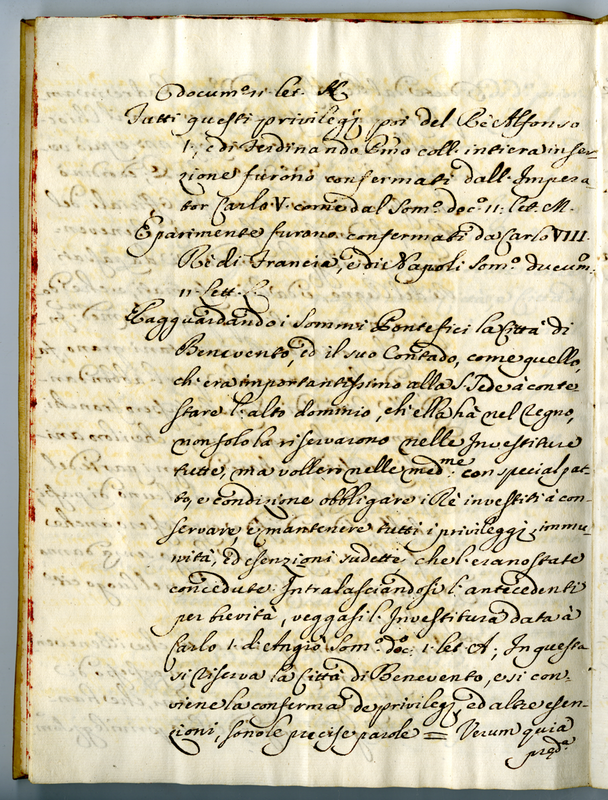 docum.º 11. let. M.
Tutti questi privilegj pri del Rè Alfonso
1.º, e di Ferdinando Pmo coll' intiera inser-
zione furono confermati dall' Impera-
tor Carlo V. come dal Som.º doc.º 11. let. M.
E parimente furono confermati da Carlo VIII.
Rè di Francia, e di Napoli Som.º ducum.º
11. lett.
Ragguardando i Sommi Pontefici la Città di
Benevento, ed il suo Contado, come quello,
ch' era importantissimo alla S. Sede à conte
stare l' alto dominio, ch' ella hà nel Regno,
non solo la riservarono nelle Investiture
tutte, ma vollero nelle med.me con special pat-
to, e condizione obbligare i Rè investiti à con-
servare, e mantenere tutti i privileggj, immu-
nità, ed esenzioni sudetti, che l' erano state
concedute. Intralasciandosi l' antecedenti
per brevità, veggasi l' Investitura data à
Carlo 1. di Angiò Som.º doc. 1. let. A; In questa
si riserva la Città di Benevento, e si con-
viene la conferma de privilegj, ed altre esen-
zioni, sono le precise parole = Verum quia
pręd.ª